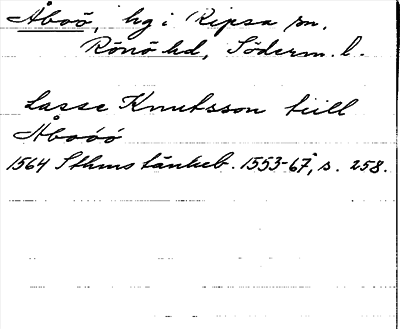 Åboö, hg i Ripsa sn.
Rönö hd, Söderm. l.
Lasse Knutsson tiill
Åboóó
1564 Sthms tänkeb. 1553-67, s. 258.